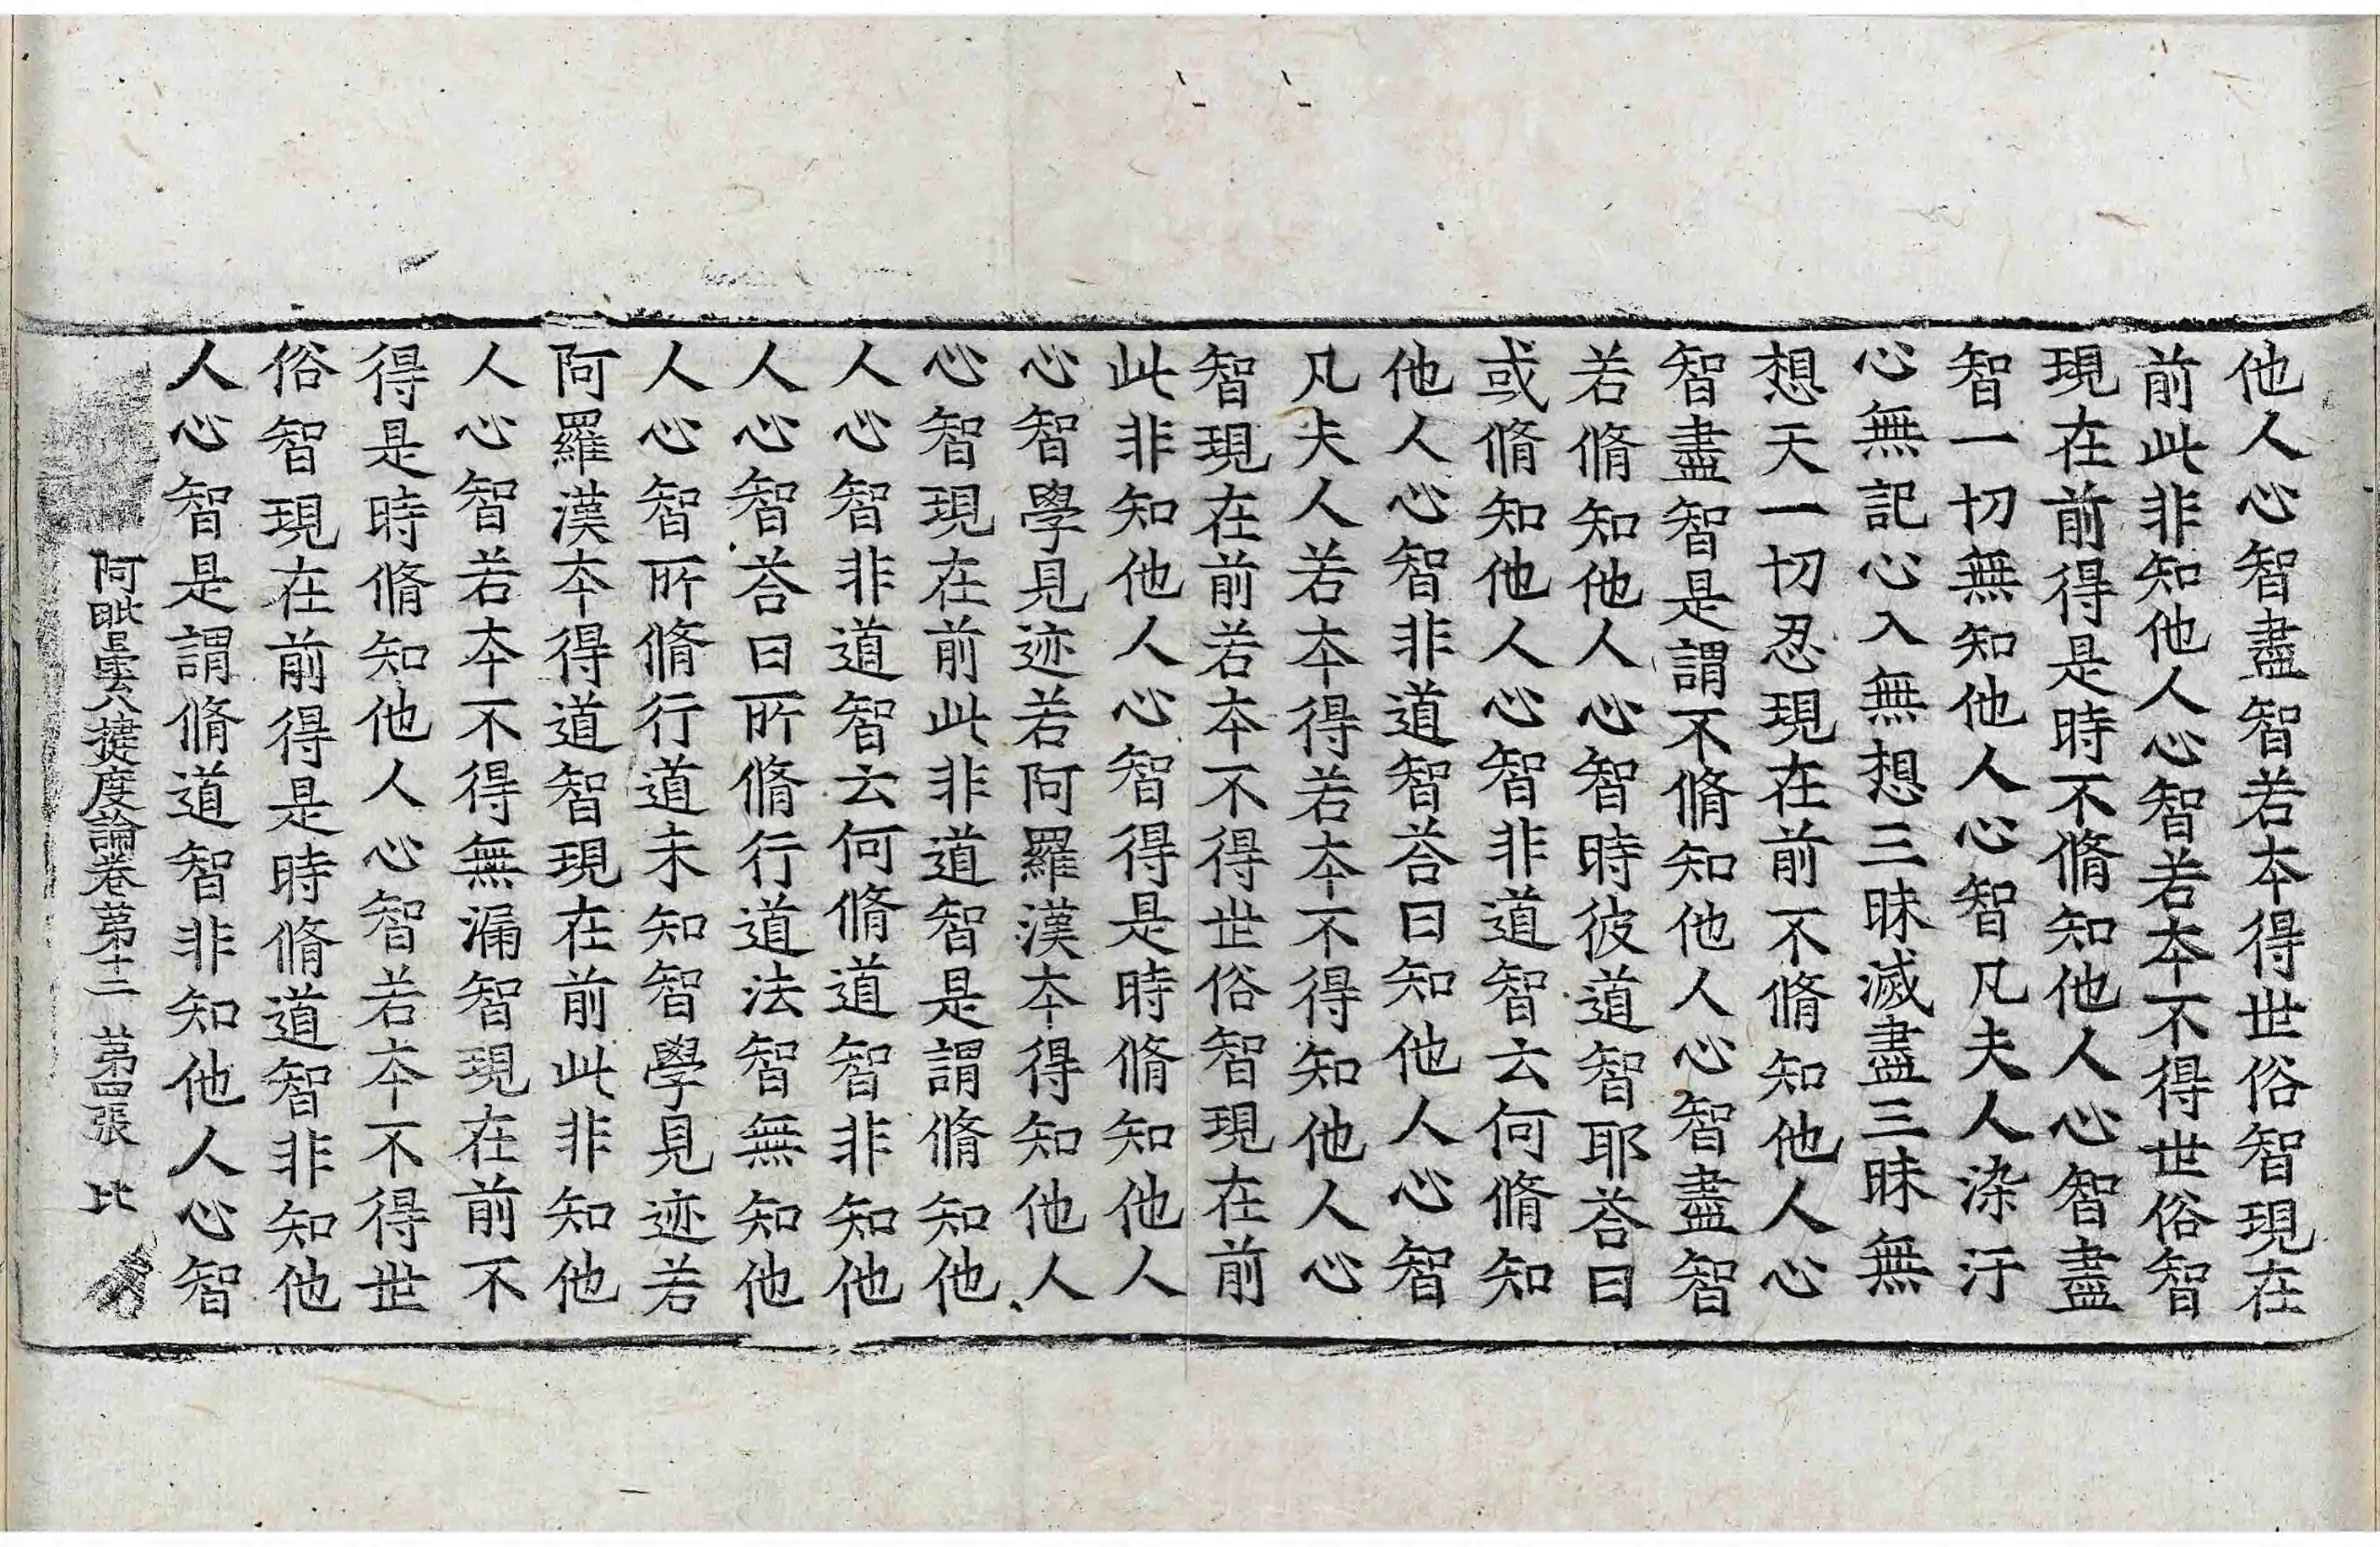 他人心智盡智若夲得世俗智現在
前此非知他人心智若夲不得世俗智
現在前得是時不脩知他人心智盡
智一切無知他人心智凡夫人染汙
心無記心入無想三昧滅盡三昧無
想天一切忍現在前不脩知他人心
智盡智是謂不脩知他人心智盡智
若脩知他人心智時彼道智耶荅曰
或脩知他人心智非道智云何脩知
他人心智非道智荅曰知他人心智
凡夫人若夲得若夲不得知他人心
智現在前若夲不得世俗智現在前
此非知他人心智得是時脩知他人
心智學見迹若阿羅漢夲得知他人
心智現在前此非道智是謂脩知他
人心智非道智云何脩道智非知他
人心智荅曰所脩行道法智無知他
人心智所脩行道未知智學見迹若
阿羅漢夲得道智現在前此非知他
人心智若夲不得無漏智現在前不
得是時脩知他人心智若夲不得世
俗智現在前得是時脩道智非知他
人心智是謂脩道智非知他人心智
阿毗曇八揵度論卷苐十二 苐四張 比